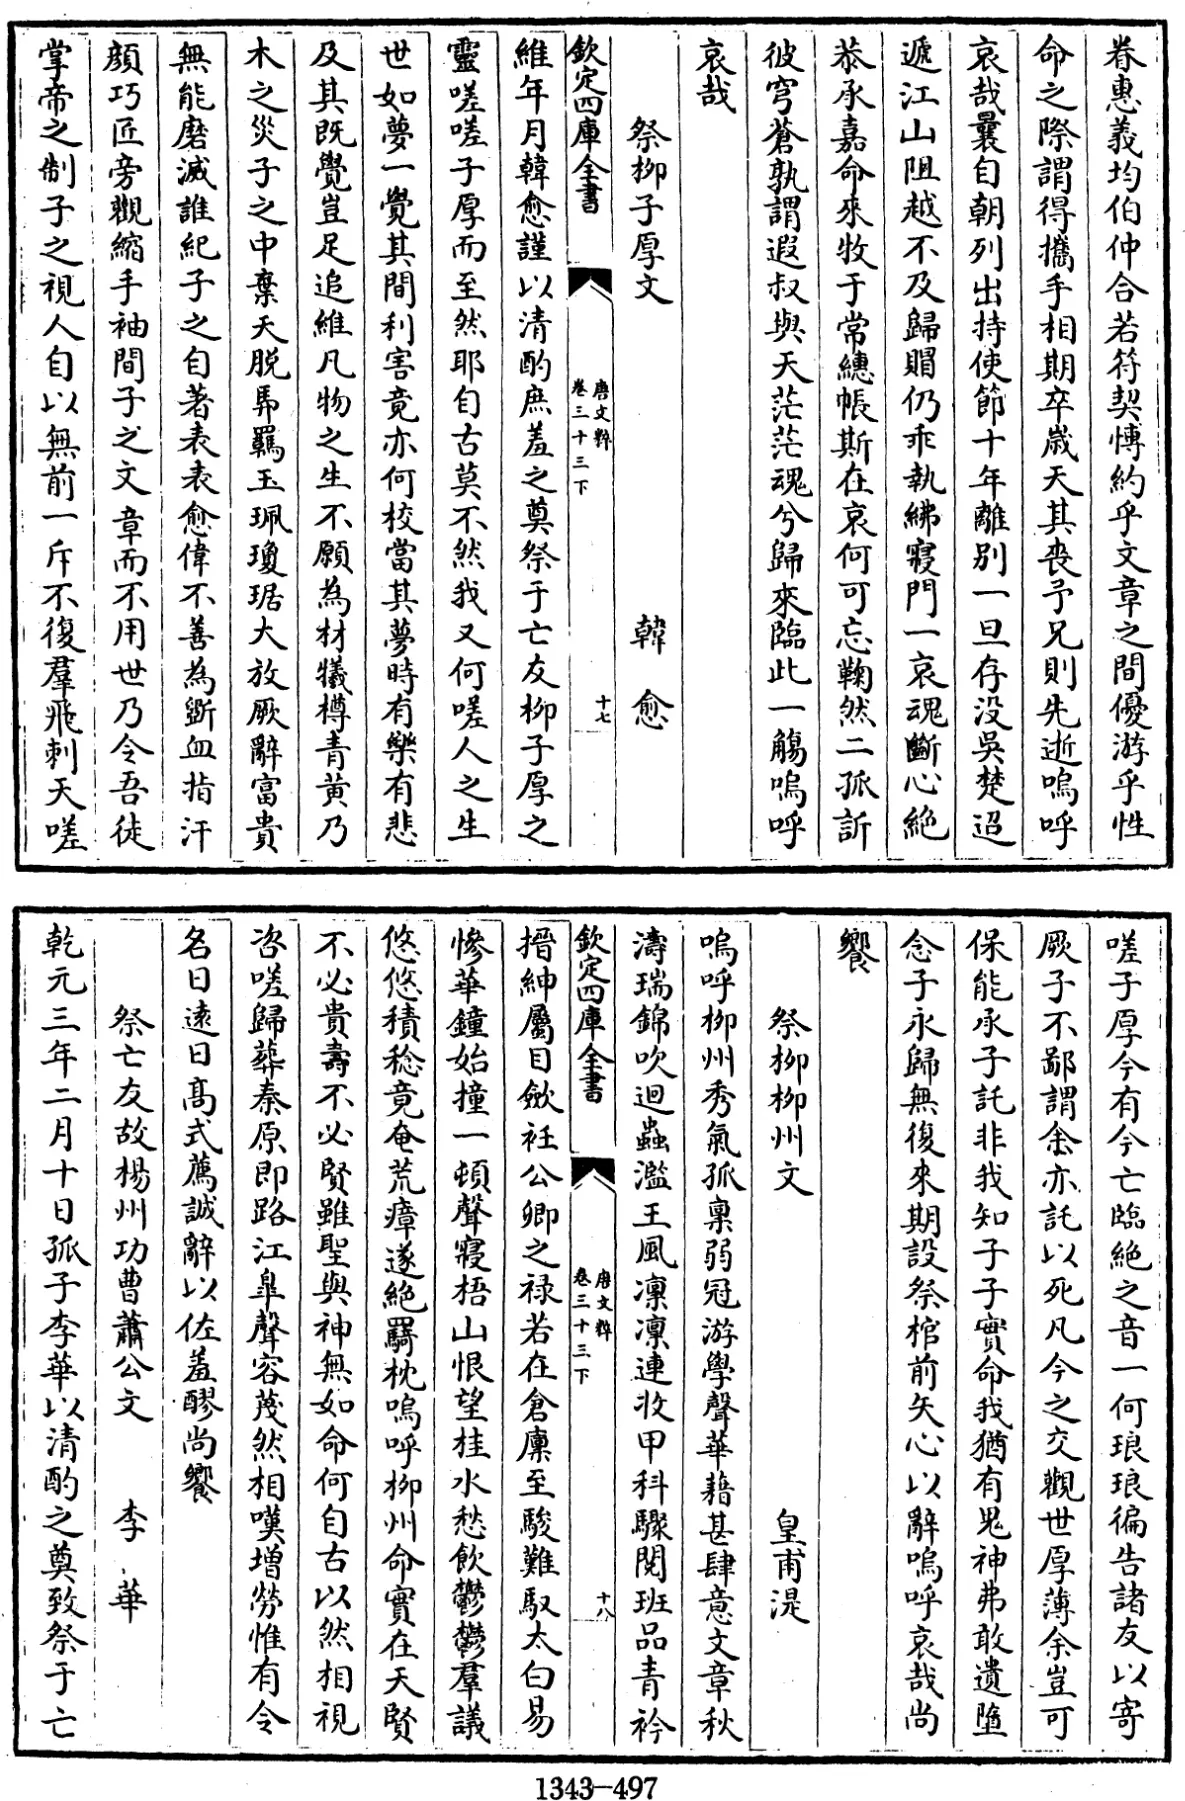 眷惠義均伯仲合若符契慱約乎文章之間優游乎性
命之際謂得攜手相期卒歲天其喪予兄則先逝嗚呼
哀哉曩自朝列出持使節十年離別一旦存没吳楚迢
遞江山阻越不及歸賵仍乖執紼寢門一哀魂斷心絶
恭承嘉命來牧于常繐帳斯在哀何可忘鞠然二孤訴
彼穹蒼孰謂遐叔與天茫茫魂兮歸來臨此一觴嗚呼
哀哉
祭柳子厚文 韓愈
欽定四庫全書 唐文粹 卷三十三下 十七
維年月韓愈謹以清酌庶羞之奠祭于亡友柳子厚之
靈嗟嗟子厚而至然耶自古莫不然我又何嗟人之生
世如夢一覺其間利害竟亦何校當其夢時有樂有悲
及其既覺豈足追維凡物之生不願為材犧樽青黄乃
木之災子之中棄天脱馽羈玉珮瓊琚大放厥辭富貴
無能磨滅誰紀子之自著表表愈偉不善為斵血指汗
顔巧匠旁觀縮手袖間子之文章而不用世乃令吾徒
掌帝之制子之視人自以無前一斥不復羣飛刺天嗟
嗟子厚今有今亡臨絶之音一何琅琅徧告諸友以寄
厥子不鄙謂余亦託以死凡今之交觀世厚薄余豈可
保能承子託非我知子子實命我猶有鬼神弗敢遺墮
念子永歸無復來期設祭棺前矢心以辭嗚呼哀哉尚
饗
祭柳柳州文 皇甫湜
嗚呼柳州秀氣孤稟弱冠游學聲華藉甚肆意文章秋
濤瑞錦吹迴蟲濫王風凛凛連收甲科驟閲班品青衿
欽定四庫全書 唐文粹 卷三十三下 十八
搢紳屬目斂衽公卿之禄若在倉廩至駿難馭太白易
慘華鐘始撞一頓聲寢梧山恨望桂水愁飲鬱鬱羣議
悠悠積稔竟奄荒瘴遂絶羇枕嗚呼柳州命實在天賢
不必貴壽不必賢雖聖與神無如命何自古以然相視
咨嗟歸葬秦原即路江臯聲容蔑然相嘆增勞惟有令
名日遠日髙式薦誠辭以佐羞醪尚饗
祭亡友故楊州功曹蕭公文 李華
乾元三年二月十日孤子李華以清酌之奠致祭于亡
1343-497